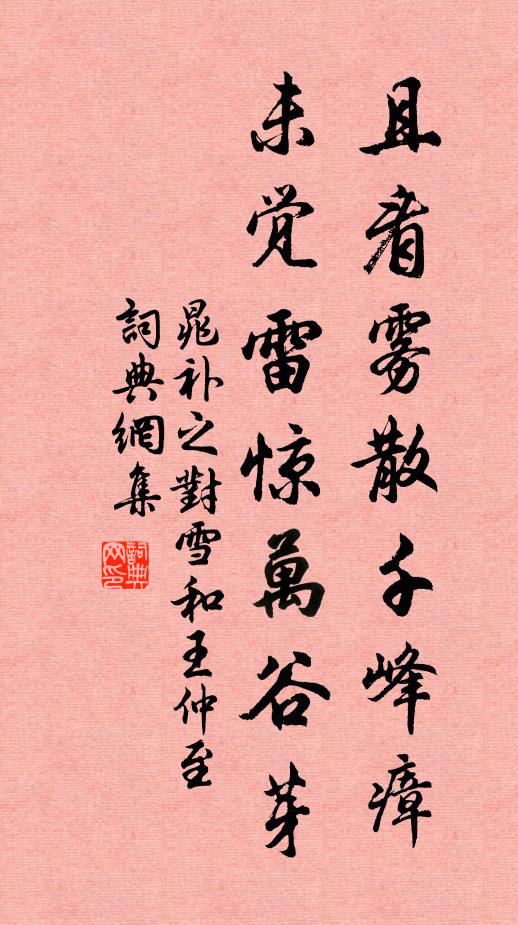 且看雾散千峰瘴
未觉雷惊萬谷芽
晁补之對雪和王仲至
詞典網集
詞典
网印